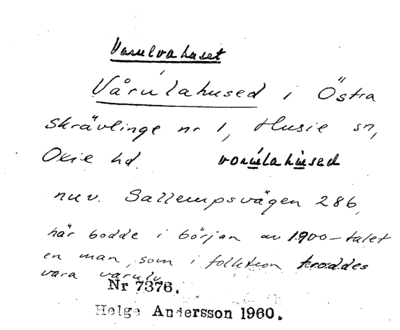 Varulvahuset
Vårúlahused i Östra
Skrävlinge nr 1, Husie sn,
Oxie hd. vorúlahùsed
nuv. Sallerupsvägen 286,
här bodde i början av 1900-talet
en man, som i folktron troddes
vara varulv.
Nr 7376.
Helge Andersson 1960.